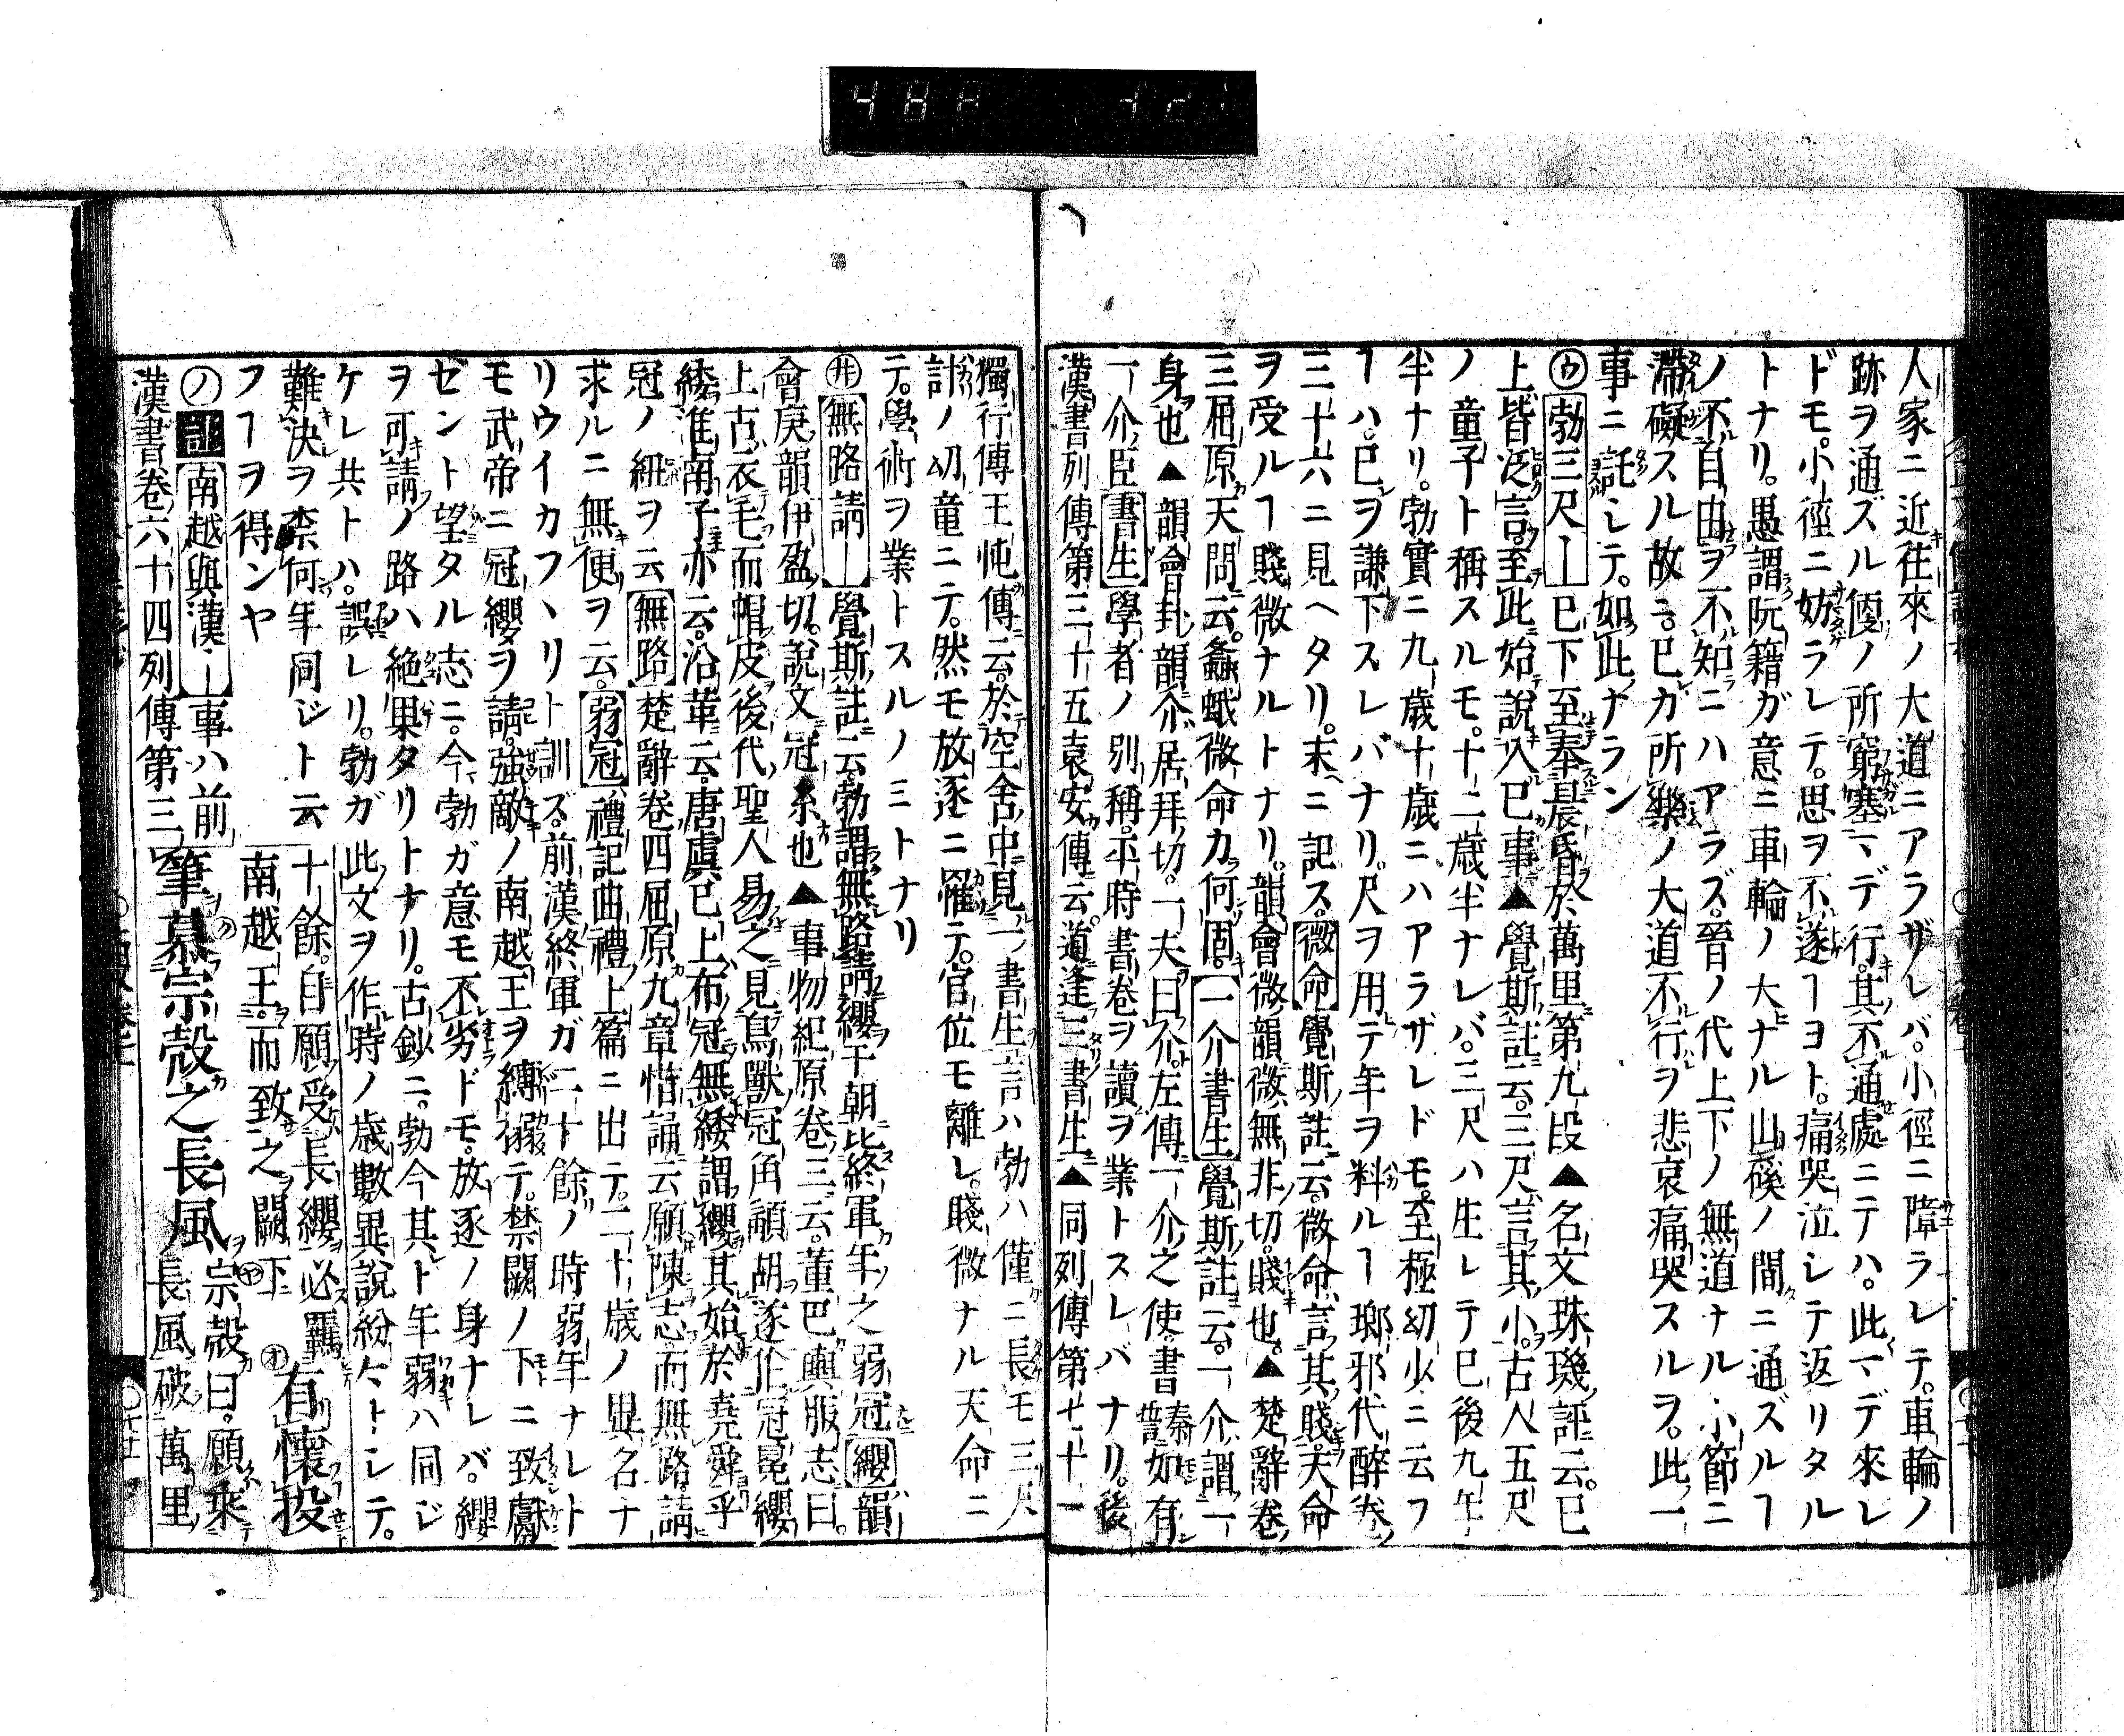 人家ニ近往來ノ大道ニアラザレバ。小徑ニ障ラレテ。車輪ノ
跡ヲ通ズル㑪ノ所窮塞マデ行。其不通處ニテハ。此マデ來レ
ドモ。小徑ニ妨ラレテ。思ヲ不遂ヿヨト。痛哭泣シテ返リタル
トナリ。愚謂阮籍ガ意ニ車輪ノ大ナル山磎ノ間ニ通ズルヿ
ノ不自由ヲ不知ニハアラズ。晉ノ代上下ノ無道ナル小節ニ
滯礙スル故ニ。已カ所樂ノ大道不行ヲ悲哀痛哭スルヲ。此一
事ニ託シテ。如此ナラン
㋒勃三尺ー已下至奉晨昏於萬里第九段▲名文珠璣評云。已
上皆泛言。至此始說入已事▲覺斯註云。三尺言其小。古人五尺
ノ童子ト稱スルモ。十二歲半ナレバ。三尺ハ生レテ已後九年
半ナリ。勃實ニ九歲十歲ニハアラザレドモ。至極幼少ニ云フ
ヿハ。已ヲ謙下スレバナリ。尺ヲ用テ年ヲ料ルヿ瑯邪代醉卷
三十六ニ見ヘタリ。末ニ記ス。微命覺斯註云。微命言其賤。天命
ヲ受ルヿ賤微ナルトナリ。韻會微韻微無非切。賤也。▲楚辭卷
三屈原天問云。蠡蛾微命力何固。一介書生覺斯註云。一介謂一
身也▲韻會卦韻介居拜切。一夫曰介。左傳一介之使。書秦誓如有
一介臣書生學者ノ別稱。平時書卷ヲ讀ヲ業トスレバナリ。後
漢書列傳第三十五袁安傳云道逢三書生▲同列傳第七十一
獨行傳王忳傳云。於空舍中見一書生言ハ勃ハ僅ニ長モ三尺
計ノ幼童ニテ。然モ放逐ニ罹テ。官位モ離レ。賤微ナル天命ニ
テ。學術ヲ業トスルノミトナリ
㋼無路請ー覺斯註云勃謂無路請纓于朝比終軍年之弱冠纓韻
會庚韻伊盈切。說文冠系也▲事物紀原卷三云。董巴輿服志曰。
上古衣毛而帽皮後代聖人易之見鳥獸冠角䫇胡遂作冠冕纓
緌淮南子亦云。沿革云。唐虞已上布冠無緌謂纓其始於堯舜乎
冠ノ紐ヲ云無路楚辭卷四屈原九章惜誦云願陳志而無路。請
求ルニ無便ヲ云。弱冠禮記曲禮上篇ニ出テ。二十歲ノ異名ナ
リウイカフヽリト訓ズ。前漢終軍ガ二十餘ノ時弱年ナレト
モ武帝ニ冠纓ヲ請。強敵ノ南越王ヲ縛搦テ。禁闕ノ下ニ致獻
ゼント望タル志ニ。今勃ガ意モ不劣ドモ。放逐ノ身ナレバ。纓
ヲ可請ノ路ハ絶果タリトナリ。古鈔ニ。勃今其ト年弱ハ同ジ
ケレ共トハ。誤レリ。勃ガ此文ヲ作時ノ歲數異說紛々トシテ。
難決ヲ柰何年同ジト云
フヿヲ得ンヤ
㋨註南越與漢ー事ハ前
漢書卷六十四列傳第三
十餘。自願受長纓必羈
南越王而致之闕下
㋔有懷投
筆慕宗愨之長風
宗愨曰。願乘
長風破萬里